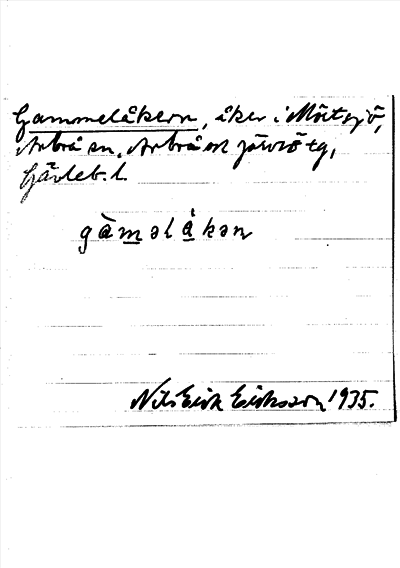 Gammelåkern, åker i Mötsjö,
Arbrå sn, Arbrå och Järvsö tg,
Gävleb. l.
gàməlåkən
Nils Erik Eriksson 1935.